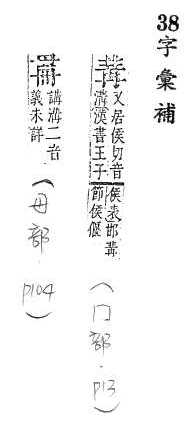 38字彙補
又居侯切音
溝漢書王子
侯表邯冓
節侯偃
(冂部.p13)
講海二音
義未詳
(母部.p104)